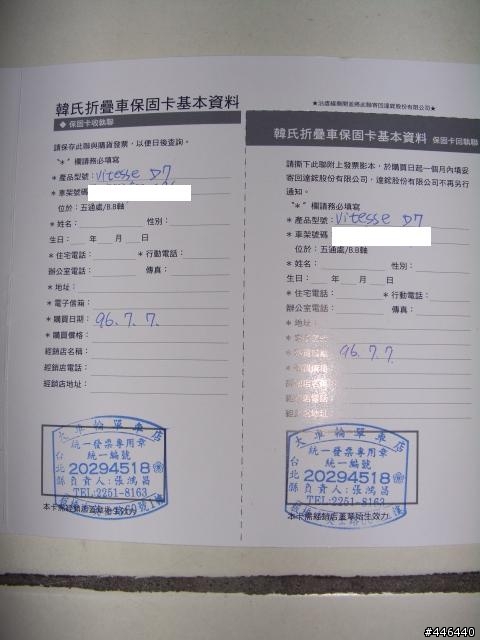 韓氏折疊車保固卡基本資料
◆ 保固卡收執聯
請保存此聯與購貨發票，以便日後查詢。
"*" 欄請務必填寫
* 產品型號：Vitesse D7
* 車架號碼
位於：五通處/B.B軸
* 姓名： 性別：
生日： 年 月 日
* 住宅電話： * 行動電話：
辦公室電話： 傳真：
* 地址：
* 電子信箱：
* 購買日期：96.7.7.
* 購買價格：
經銷店名稱：
經銷店電話：
經銷店地址：
大車輪單車店
統一發票專用章
統一編號
台北縣
20294518
負責人：張鴻昌
TEL:2251-8163
本卡需經銷店蓋章始生效力
★沿虛線撕開並將此聯寄回達鋐股份有限公司★
韓氏折疊車保固卡基本資料 保固卡回執聯
請撕下此聯附上發票影本，於購買日起一個月內填妥
寄回達鋐股份有限公司，達鋐股份有限公司不再另行
通知。
"*" 欄請務必填寫
* 產品型號：Vitesse D7
* 車架號碼
位於：五通處/B.B軸
* 姓名： 性別：
生日： 年 月 日
* 住宅電話： * 行動電話：
辦公室電話： 傳真：
* 地址：
96.7.7.
經銷店名稱：
經銷店電話：
經銷店地址：
大車輪單車店
統一發票專用章
統一編號
台北縣
20294518
負責人：張鴻昌
TEL:2251-8163
本卡需經銷店蓋章始生效力
#446440